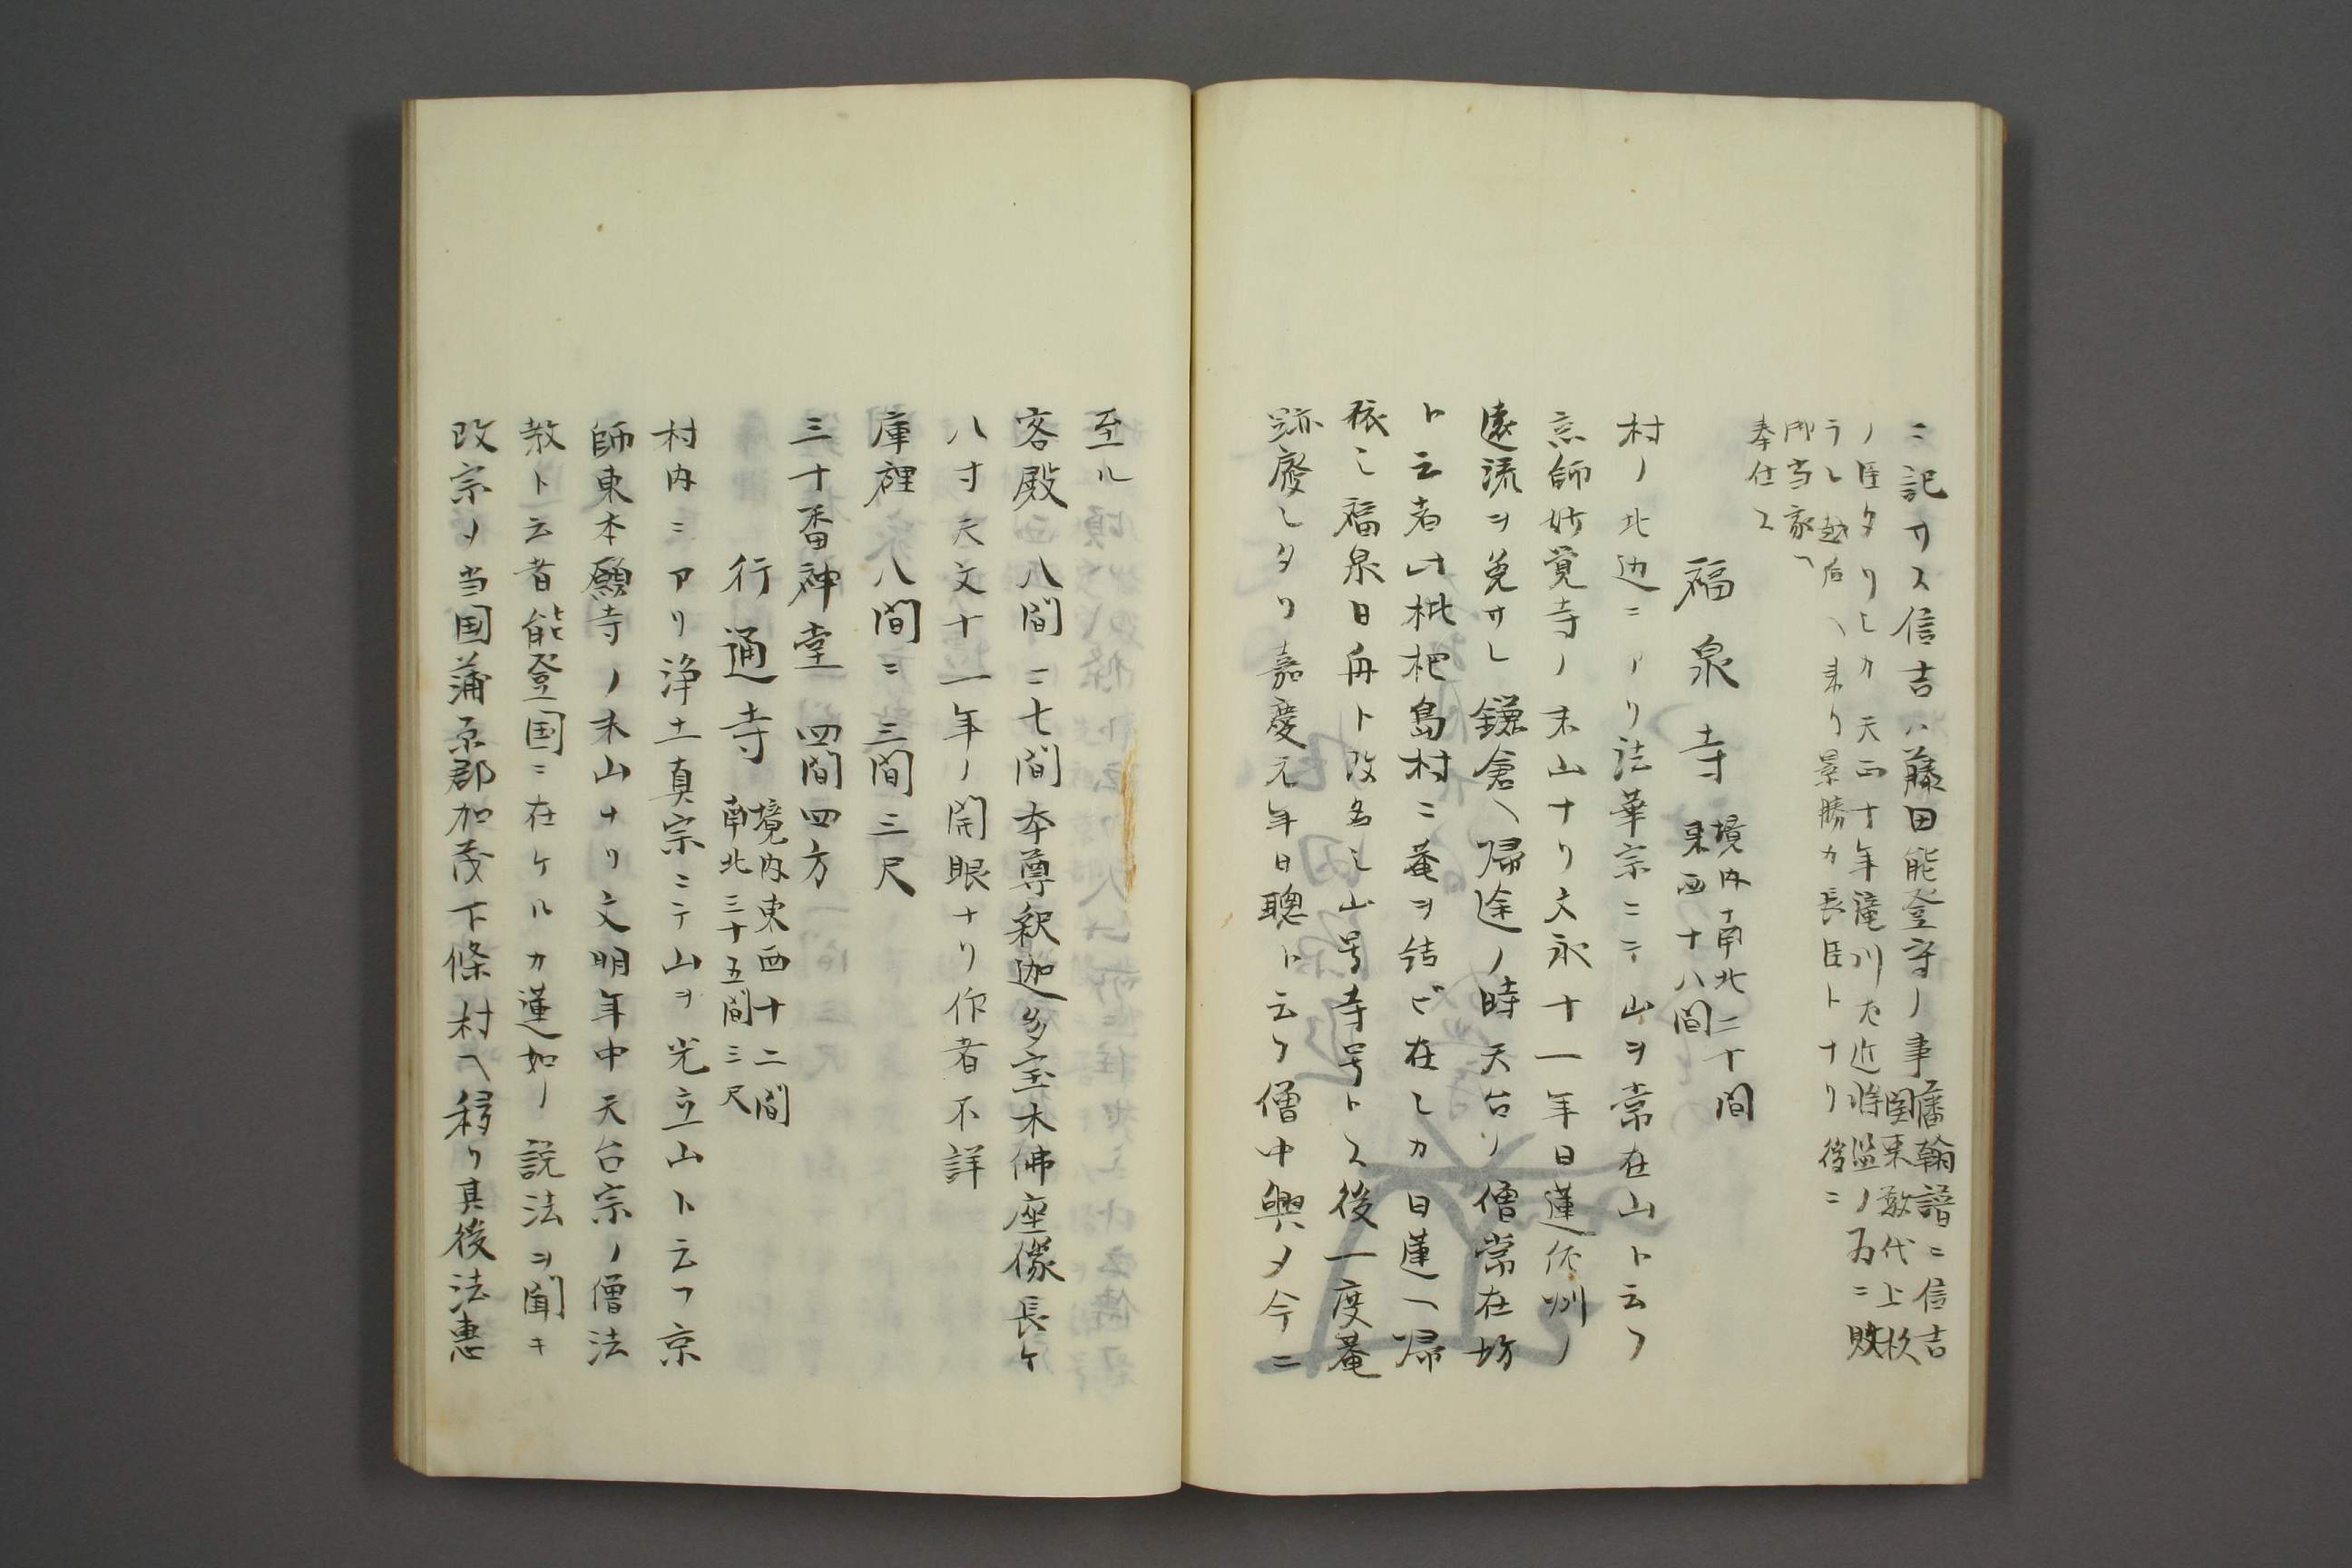 ニ記サス信吉ハ藤田能登守ノ事藩翰譜ニ信吉
関東数代上杉
ノ臣タリシカ天正十年滝川左近将監ノ為ニ敗
ラレ越后ヘ来リ景勝カ長臣トナリ後ニ
御当家ヘ
奉仕ス
福泉寺
境内南北二十間
東西十八間
村ノ北辺ニアリ法華宗ニテ山ヲ常在山ト云フ
京師妙覚寺ノ末山ナリ文永十一年日蓮佐州ノ
遠流ヲ免サレ鎌倉ヘ帰途ノ時天台ノ僧常在坊
ト云者此枇杷島村ニ菴ヲ結ビ在シカ日蓮ヘ帰
依シ福泉日舟ト改名シ山号寺号トス後一度菴
跡廢シタリ嘉慶元年日聰ト云フ僧中興メ今ニ
至ル
客殿八間ニ七間本尊釈迦多宝木佛座像長ケ
八寸天文十一年ノ開眼ナリ作者不詳
庫裡八間ニ三間三尺
三十番神堂四間四方
行通寺
境内東西十二間
南北三十五間三尺
村内ニアリ浄土真宗ニテ山ヲ光立山ト云フ京
師東本願寺ノ末山ナリ文明年中天台宗ノ僧法
教ト云者能登国ニ在ケルカ蓮如ノ説法ヲ聞キ
改宗メ当国蒲原郡加茂下條村ヘ移リ其後法恵